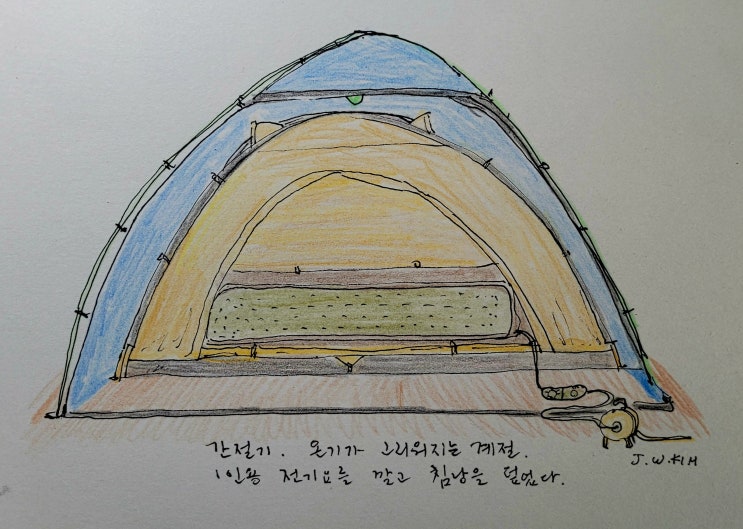 간절기. 온기가 그리워지는 계절.
1인용 전기요를 깔고 침낭을 덮었다.
J.W.KIM